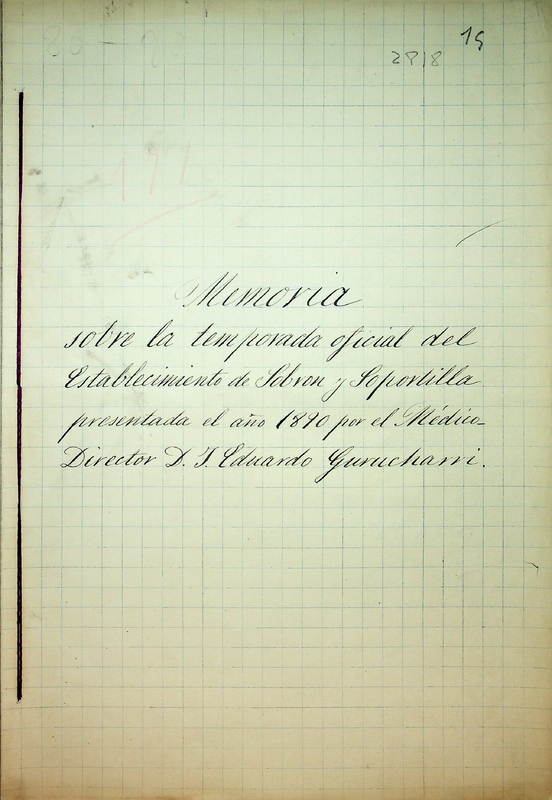 15
2818
191
Memoria
sobre la temporada oficial del
Establecimiento de Sobron y Soportilla
presentada el año 1890 por el Médico-
Director D. J. Eduardo Gurucharri.